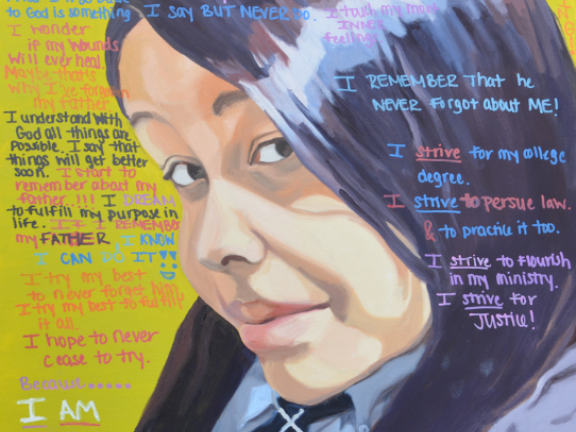 to God is something
I wonder
if my wounds
will ever heal.
Maybe thats
why I've forgotten
my father
I understand with
God all things are
possible. I say that
things will get better
soon. I start to
remember about my
father.!!! I DREAM
to fulfill my purpose in
life. I REMEMBER
my FATHER, I KNOW
I CAN DO IT!!
I try my best
to never forget him,
I try my best to fulfill
it all.
I hope to never
cease to try.
Because......
I AM
I SAY BUT NEVER DO.
I touch my many
INNER
feelings
I REMEMBER That he
NEVER Forgot about ME!
I strive for my college
degree.
I strive to persue law.
& to practice it too.
I strive to flourish
in my ministry.
I strive for
JUSTICE!